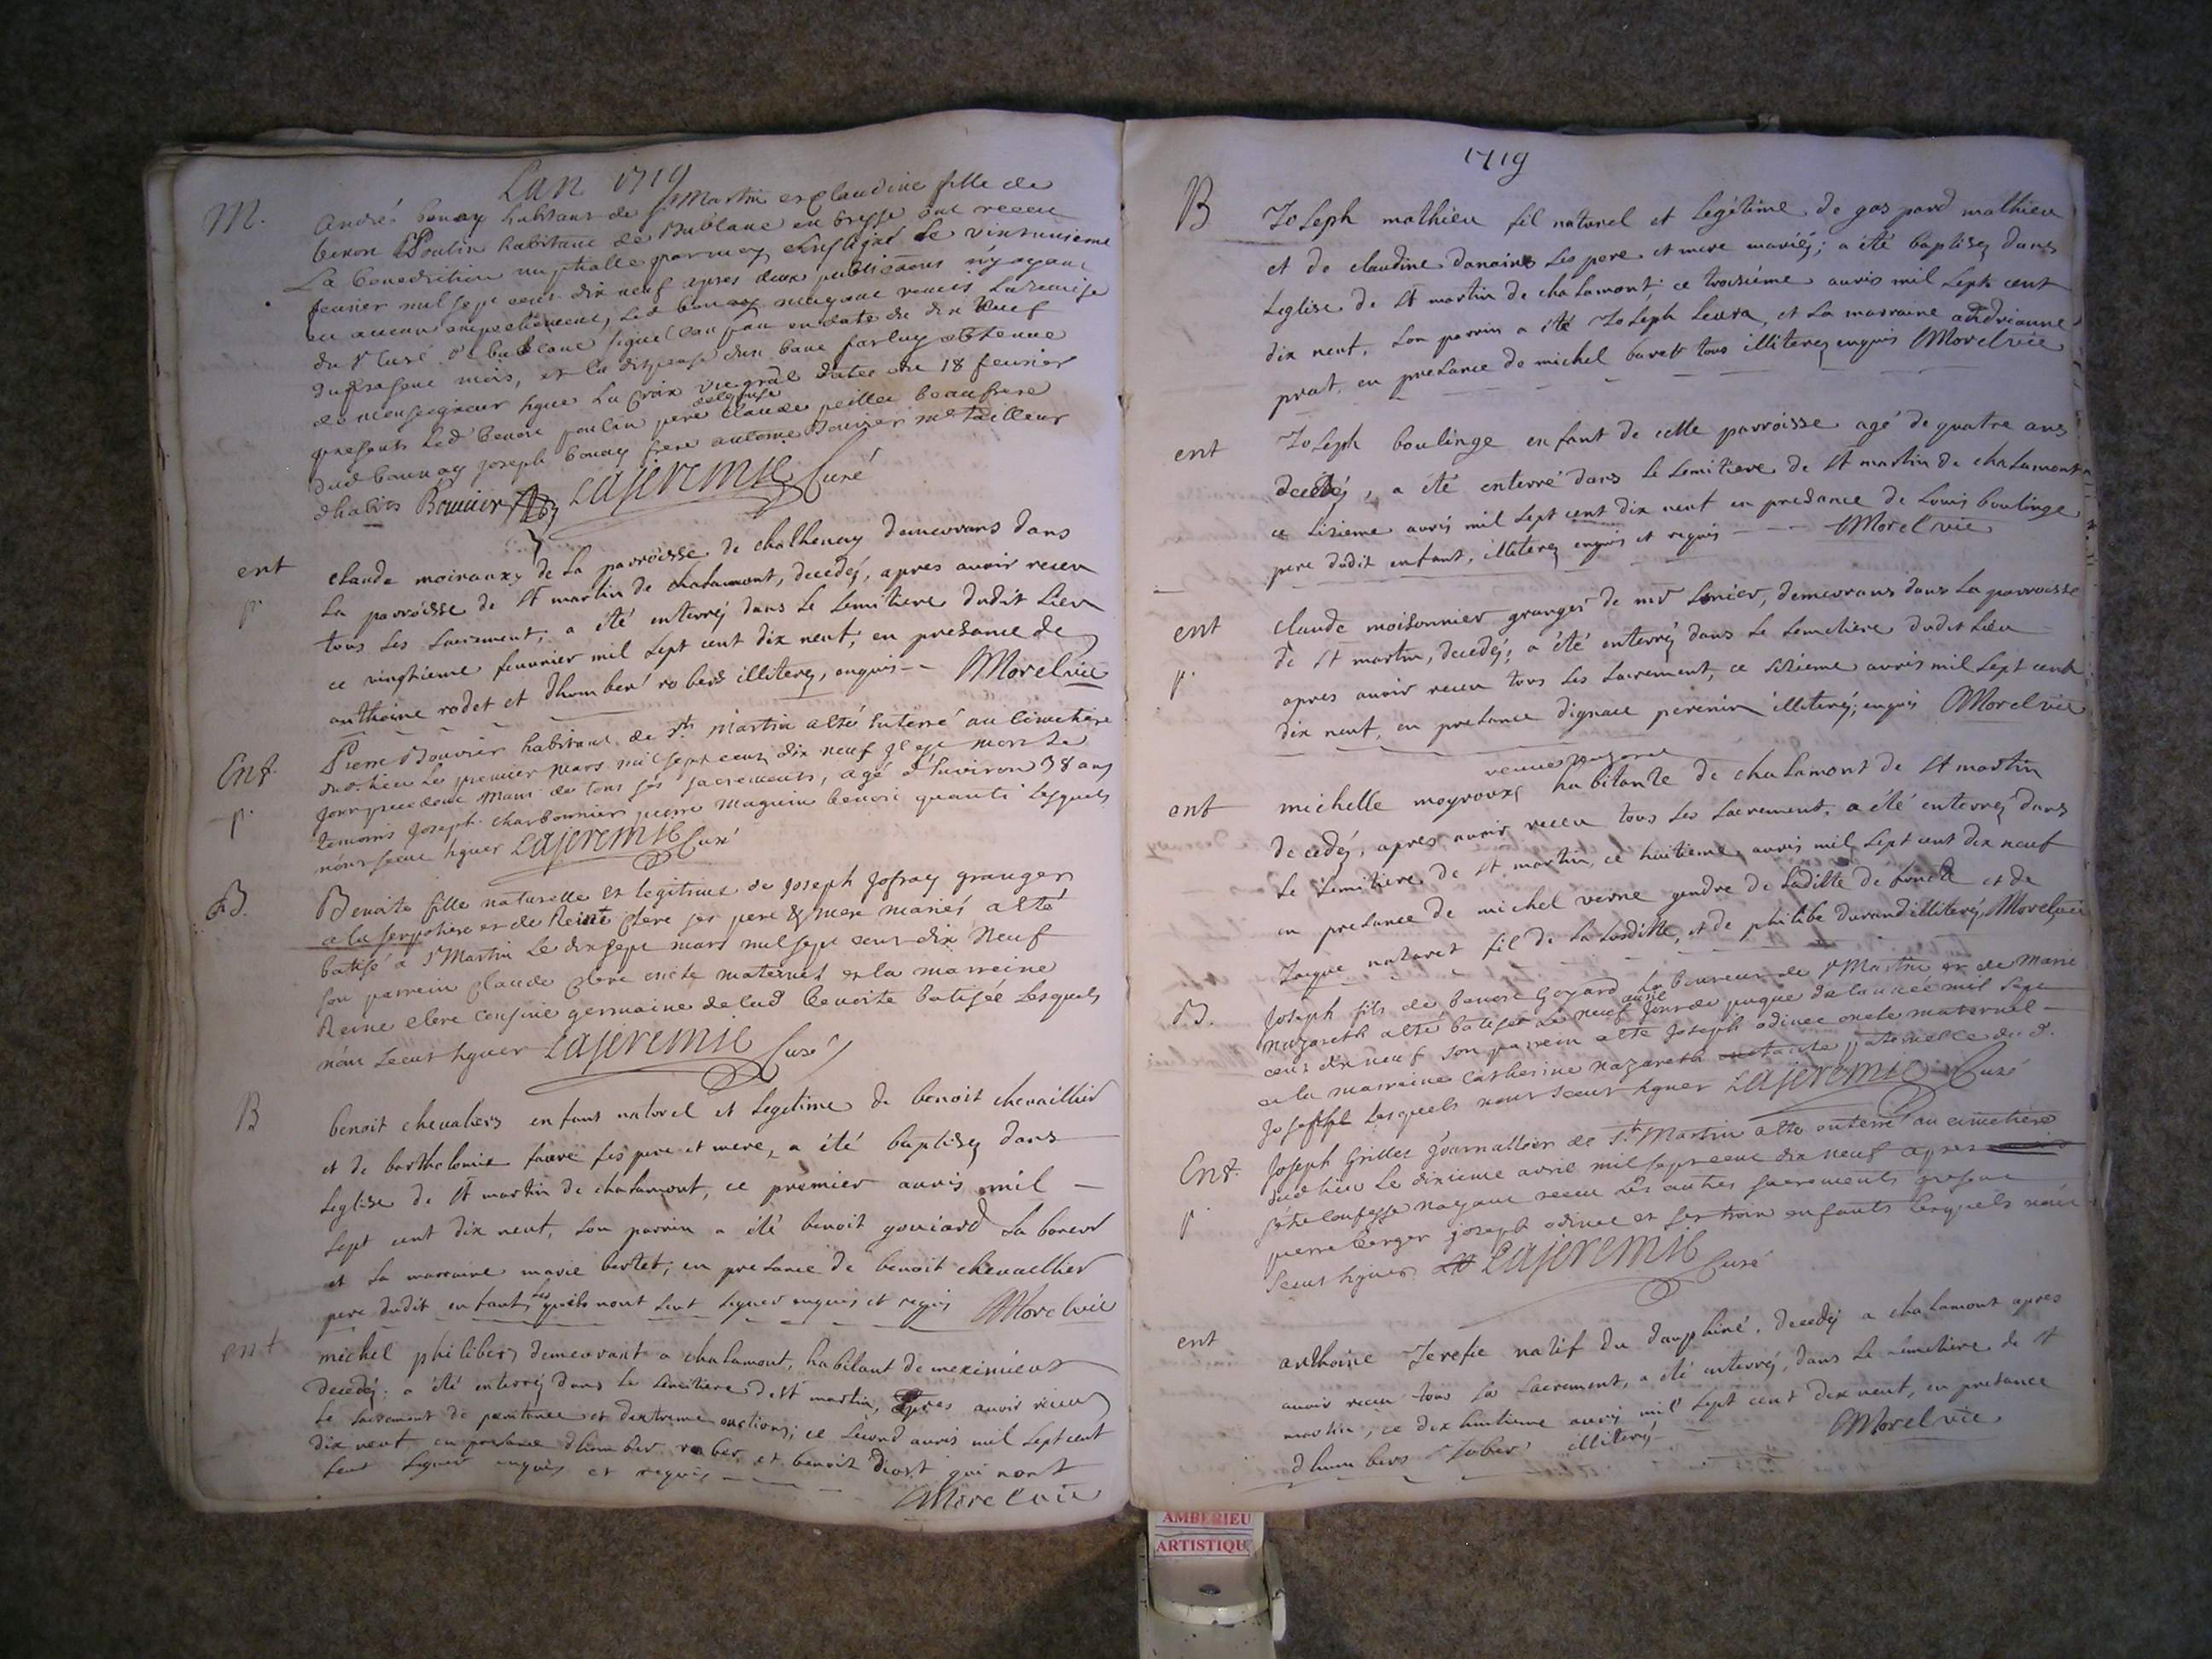 Lan 1719
M. André bonay habitant de St Martin et Claudine fille de
benoit Poulin habitant de Bublane en bresse ont receu
La benediction nuptialle par moy soussigné le vintunieme
feurier mil sept cens dix neuf apres deux publications n'y ayant
eu aucun empechement, led bonay mayant remis La remise
du Sr Curé de bublane signé en date du dix neuf
du present mois, et la dispense dun banc par luy obtenue
de monseigneur signé La Croix vic gral datée du 18 feurier
presents led benoit poulin pere de lepouse Claude peillet beaufrere
dud bonnay joseph bonay frere antoine Bouvier me tailleur
dhabits Bouuier Lajeremie Curé
ent claude moirauxz de La parroisse de chathenay demeurans dans
p La parroisse de St martin de chalamont, decedéz, apres auoir receu
tous Les Sacrement, a été enterréz dans Le Semitiere dudit Lieu
ce vingtieme feuurier mil Sept cent dix neuf, en presance de
anthoine rodet et dhomber robers illiterez, enquis - Morel vic
Ent. Pierre Bouvier habitant de St Martin a eté enterré au cimetiere
p. dud. lieu Le premier Mars mil sept cens dix neuf il est mort le
jour precedent Muni de tous ses sacrements, agé d'Environ 38 ans
temoins Joseph charbonnier pierre maguin benoit quanti Lesquels
nont sceu signer Lajeremie Curé
B. Benoite fille naturelle et legitime de joseph Jofray granger
a la serpoliere et de Reine Clere ses pere & mere mariés a eté
batisé a St Martin Le dix sept mars mil sept cens dix Neuf
son parrein Claude Clere oncle maternel et la marreine
Reine clere cousine germaine de lad benoite batisée Lesquels
nont sceus signer Lajeremie Curé
B benoit cheualiers enfant naturel et Legitime de benoit cheuaillier
et de barthelomie faure ses pere et mere, a été baptisez dans
Leglise de St martin de chalamont, ce premier auris mil -
Sept cent dix neuf, Son parrin a été benoit gouiard La boreur
et La marraine marie bertet, en presance de benoit cheuaellier
pere dudit enfant, Lesquels nont Seut Signer enquis et reqis Morel vic
ent michel philibers demeurant a chalamont, habitant de meximieux
decedéz; a été enterréz dans Le Semitiere de St martin, apres auoir receu
Le Sacrement de penitance et dextreme onctions, ce Second auris mil Sept cent
dix neuf en presance dhomber rober et benoit diost qui nont
Seut Signer enquis et requis
Morel vic
1719
B JoSeph mathieu fil naturel et Legétime de gaspard mathieu
et de claudine danaire Les pere et mere mariéz; a été baptisez dans
Leglise de St martin de chalamont; ce troisiéme auris mil Sept cent
dix neuf, Son parrin a été JoSeph Leura, et La marraine andrianne
prat, en presance de michel buret tous illiterez enquis Morel vic
ent JoSeph boulinge enfant de cette parroisse agé de quatre ans
decedéz, a été enterré dans Le Semitiere de St martin de chalamont
ce Sisieme auris mil Sept cent dix neuf en presance de Louis boulinge
pere dudit enfant, illiterez enquis et requis - - - Morel vic
ent claude moisonnier granger de mr , demeurans dans La parroisse
p. de St martin, decedéz; a été enterréz dans Le Semetiere dudit Lieu
apres auoir receu tous Les Sacrement, ce Sisieme auris mil Sept cent
dix neuf, en presance dignace perenin illiteréz, enquis Morel vic
veuue nazaret
ent michelle moyroux habitante de chalamont de St martin
decedéz, apres auoir receu tous Les Sacrement, a été enterréz dans
Le Semitiere de St martin, ce huitieme auris mil Sept cent dix neuf
en presance de michel verne gendre de Laditte defuncte et de
Jacque nazaret fil de La Susditte, et de philibe durand illiteréz Morel vic
B. Joseph fils de benoit Goyard Laboureur de St Martin et de Marie
Nazareth a eté batisé Le neuf avril jour de paque de lannée mil sept
cens dix neuf son parrein a eté Joseph odinet oncle maternel -
et la marraine Catherine Nazareth paternelle du d.
Joseph Lesquels nont sceut signer Lajeremie Curé
Ent. Joseph Grillet journallier de St Martin a eté enterré au cimetiere
p. dud lieu Le dixieme avril mil sept cens dix neuf apres
s'etre confessé nayant receu Les autres sacrements present
pierre berger joseph odinet et ses trois enfants lesquels nont
sceut signer Lajeremie Curé
ent anthoine Jerefie natif du dauphiné, decedéz a chalamont apres
auoir receu tous Les Sacrement, a été enterréz, dans Le Semetiere de St
martin, ce dix huitieme auris mil Sept cent dix neuf, en presance
dhumbers Jober illiteréz Morel vic
AMBERIEU
ARTISTIQU